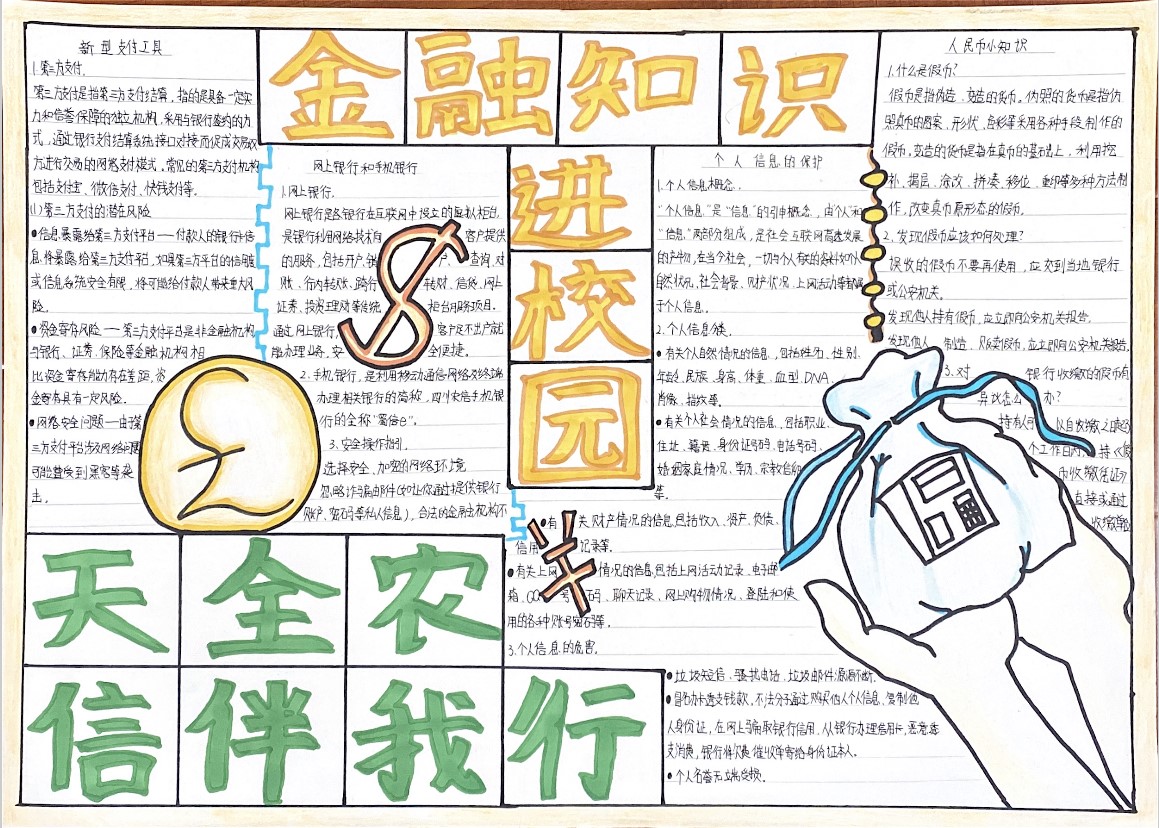 金融知识
进校园
天全农
信伴我行
新型支付工具
1.第三方支付.
第三方支付是指第三方支付结算,指的是具备一定实
力和信誉保障的独立机构,采用与银行签约的方
式,通过银行支付结算系统接口对接而促成交易双
方进行交易的网络支付模式。常见的第三方支付机构
包括支付宝、微信支付、快钱支付等。
(1)第三方支付的潜在风险
●信息暴露给第三方支付平台——付款人的银行卡信
息将暴露给第三方支付平台,如果第三方平台的信用度
或信息系统安全有限,将可能给付款人带来重大风
险。
●资金寄存风险——第三方支付平台是非金融机构
与银行、证券、保险等金融机构相
比资金寄存能力存在差距,资
金寄存具有一定风险。
●网络安全问题—由于第
三方支付平台涉及网络问题
可能遭受到黑客等袭
击.
网上银行和手机银行
1.网上银行.
网上银行是各银行在互联网中设立的虚拟柜台,
是银行利用网络技术向 客户提供
的服务,包括开户、销 户、查询、对
账、行内转账、跨行 转账、信贷、网上
证券、投资理财等传统 柜台服务项目.
通过网上银行, 客户足不出户就
能办理业务,安 全便捷.
2.手机银行,是利用移动通信网络及终端
办理相关银行的简称,四川农信手机银
行的全称“蜀信e”.
3.安全操作指引.
选择安全、加密的网络环境
忽略诈骗邮件(如让你通过提供银行
账户、密码等私人信息),合法的金融机构不
个人信息的保护
1.个人信息概念.
“个人信息”是“信息”的引申概念,由个人和
“信息”两部分组成,是社会互联网高速发展
的产物,在当今社会,一切与个人有关的资料如个人
自然状况、社会背景、财产状况、上网活动等都属
于个人信息.
2.个人信息分类.
●有关个人自然情况的信息,包括姓名、性别、
年龄、民族、身高、体重、血型、DNA、
肖像、指纹等.
●有关个人社会情况的信息,包括职业、
住址、籍贯、身份证号码、电话号码、
婚姻家庭情况、学历、宗教信仰
等.
●有关财产情况的信息包括收入、资产、负债、
信用记录等.
●有关上网情况的信息,包括上网活动记录、电子邮
箱、QQ号码、聊天记录、网上购物情况、登陆和使
用的各种账号密码等.
3.个人信息的危害.
●垃圾短信、骚扰电话、垃圾邮件源源不断.
●冒名办卡透支钱款,不法分子通过购买他人个人信息,复制他
人身份证,在网上骗取银行信用,从银行办理信用卡,恶意透
支消费,银行将欠费催收单寄给身份证本人.
●个人名誉无端受损.
人民币小知识
1.什么是假币?
假币是指伪造、变造的货币。伪照的货币是指仿
照真币的图案、形状、色彩等采用各种手段制作的
假币,变造的货币是指在真币的基础上,利用挖
补、揭层、涂改、拼凑、移位、重印等多种方法制
作,改变真币原形态的假币.
2.发现假币应该如何处理?
误收的假币不要再使用,应交到当地银行
或公安机关.
发现他人持有假币,应立即向公安机关报告.
发现他人 制造、贩卖假币,应立即向公安机关报告.
3.对 银行收缴的假币有
异议怎么办?
持有人可以自收缴之日起
个工作日内,持《假
币收缴凭证》
直接或通过
收缴单位